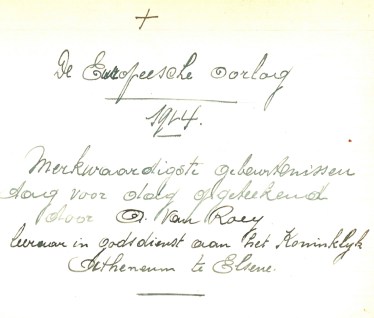 De Europeesche oorlog
1914.
Merkwaardigste gebeurtenissen
dag voor dag opgeteekend
door A. Van Roey
leeraar in godsdienst aan het Koninklijk
Atheneum te Elsene.